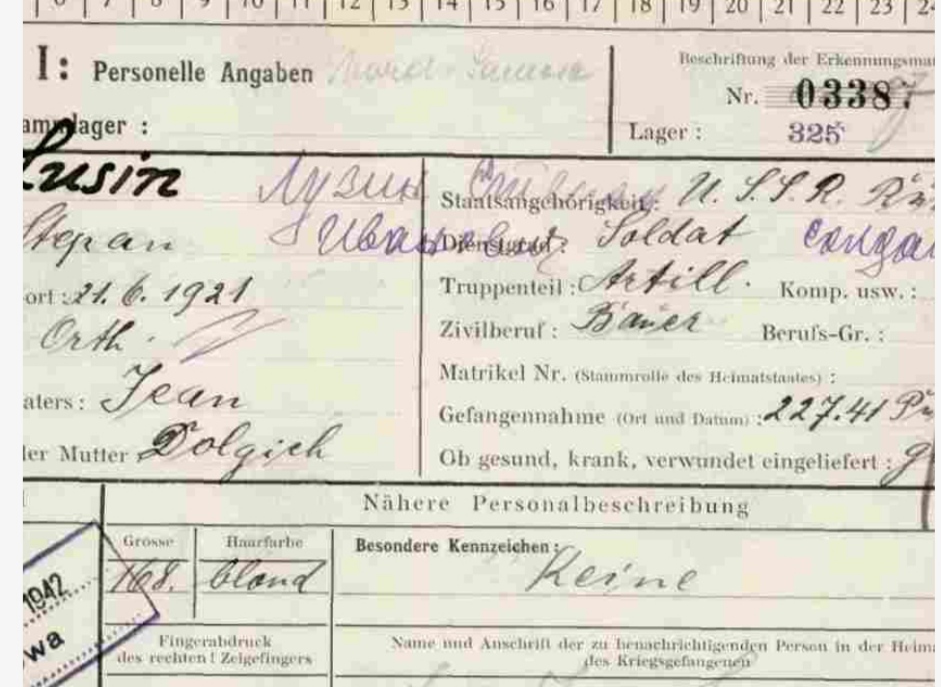 6 7 8 9 10 11 12 13 14 15 16 17 18 19 20 21 22 23 24
I: Personelle Angaben
Beschriftung der Erkennungsmar
Nr. 03387
ammlager :
Lager : 325
Lusin Лузин Staatsangehörigkeit: U.S.S.R.
Stepan Иванович Dienstgrad: Soldat солда
ort : 21. 6. 1921 Truppenteil : Artill. Komp. usw. :
Orth. Zivilberuf : Bauer Berufs-Gr. :
Matrikel Nr. (Stammrolle des Heimatstaates) :
aters : Jean Gefangennahme (Ort und Datum) : 227.41
der Mutter Dolgich Ob gesund, krank, verwundet eingeliefert : g
Nähere Personalbeschreibung
Grosse Haarfarbe Besondere Kennzeichen :
168. blond Keine
1942
wa
Fingerabdruck Name und Anschrift der zu benachrichtigenden Person in der Heim
des rechten ! Zeigefingers des Kriegsgefangenen